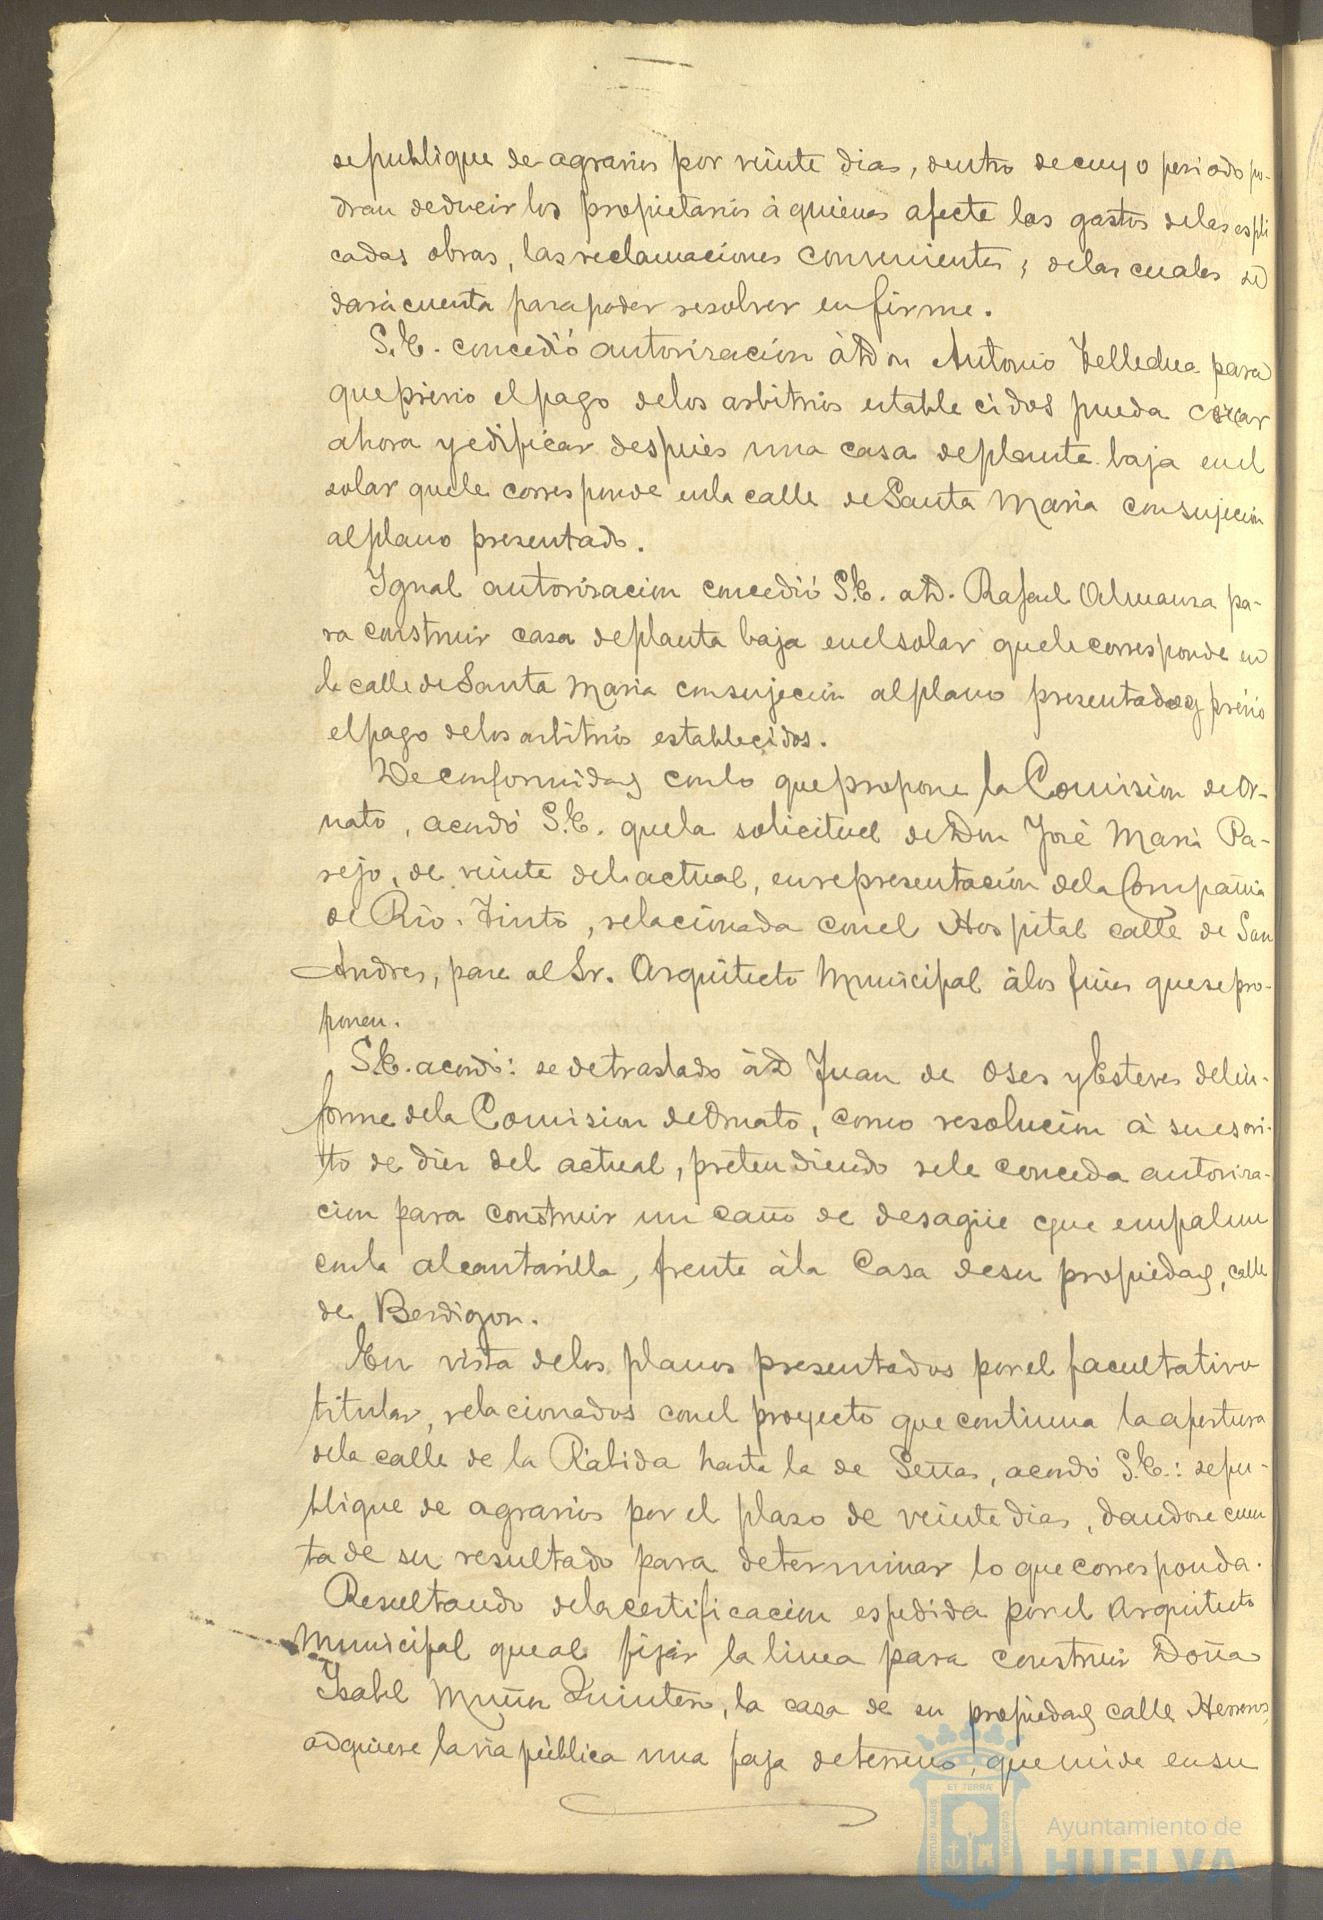 se publique de agravios por veinte dias, dentro de cuyo periodo po-
dran deducir los propietarios à quienes afecte los gastos de las espli
cadas obras, las reclamaciones convenientes; de las cuales se
dará cuenta para poder resolver en firme.
S.E. concedió autorizacion à Don Antonio para
que prévio el pago de los arbitrios establecidos pueda cercar
ahora y edificar despues una casa de planta baja en el
solar que le corresponde en la calle de Santa Maria con sujecion
al plano presentado.
Ygual autorizacion concedió S.E. a D. Rafael Almansa pa-
ra construir casa de planta baja en el solar que le corresponde en
la calle de Santa Maria con sujecion al plano presentado y prévio
el pago de los arbitrios establecidos.
De conformidad con lo que propone la Comision de Or-
nato, acordó S.E. que la solicitud de Don José Maria Pa-
rejo, de veinte del actual, en representacion de la Compañia
de Rio-Tinto, relacionada con el Hospital calle de San
Andres, pase al Sr. Arquitecto Municipal à los fines que se pro-
ponen.
S.E. acordó: se dé traslado à D Juan de Oses y Esteves del in-
forme de la Comision de Ornato, como resolucion à su escri-
to de diez del actual, pretendiendo se le conceda autoriza-
cion para construir un caño de desagüe que empalme
con la alcantarilla, frente à la Casa de su propiedad, calle
de Berdigon.
En vista de los planos presentados por el facultativo
titular, relacionados con el proyecto que continua la apertura
de la calle de la Rábida hasta la de Señas, acordó S.E.: se pu-
blique de agravios por el plazo de veinte dias, dandose cuen
ta de su resultado para determinar lo que corresponda.
Resultando de la certificacion espedida por el Arquitecto
Municipal que al fijar la linea para construir Doña
Ysabel Muñoz Quintero, la casa de su propiedad calle Herreros,
adquiere la via pública una faja de terreno, que mide en su
PORTUS MARIS
ET TERRAE
CUSTODIA
Ayuntamiento de
HUELVA